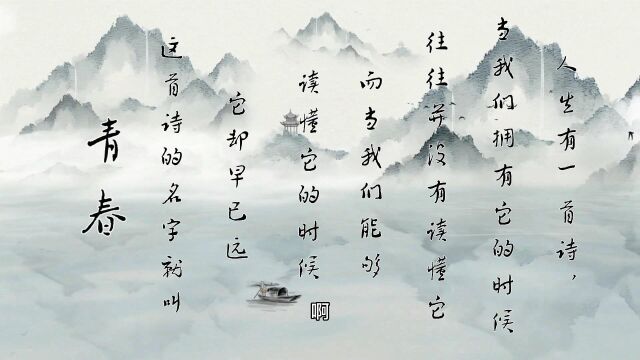 人生有一首诗，
当我们拥有它的时候
往往并没有读懂它
而当我们能够
读懂它的时候
它却早已远
这首诗的名字就叫
青春
啊